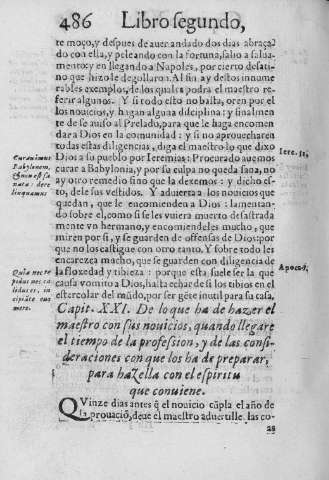 486 Libro segundo,
te moço, y despues de auer andado dos dias abraça-
do con ella, y peleando con la fortuna, saluo a salua-
mento: y en llegando a Napoles, por cierto desati-
no que hizo le degollaron. Al fin ay destos innume
rables exemplos, de los quales podra el maestro re-
ferir algunos. Y si todo esto no basta, oren por el
los nouicios, y hagan alguna diciplina: y finalmen
te se de auiso al Prelado, para que le haga encomen
dar a Dios en la comunidad: y si no aprouecharen
todas estas diligencias, diga el maestro lo que dixo
Dios a su pueblo por Ieremias: Procurado auemos
curar a Babylonia, y por su culpa no queda sana, no
ay otro remedio sino que la dexemos: y dicho es-
to, dele sus vestidos. Y aduierta a los nouicios que
quedan, que le encomienden a Dios: lamentan-
do sobre el, como si se les vuiera muerto desastrada
mente vn hermano, y encomiendeles mucho, que
miren por si, y se guarden de offensas de Dios: por
que no los castigue con otro tanto, Y sobre todo les
encarezca mucho, que se guarden con diligencia de
la floxedad y tibieza: porque esta suele ser la que
causa vomito a Dios, hasta echar de si los tibios en el
estercolar del mũdo, por ser gẽte inutil para su casa.
Curauimus
Babylonem,
& non est sa
nata: dere
linquamus
Iere. 51,
Quia nec te
pidus nec ca
lidus es, in-
cipiã te euo
mere.
Apocal.
Capit. XXI. De lo que ha de hazer el
maestro con sus nouicios, quando llegare
el tiempo de la profession, y de las consi-
deraciones con que los ha de preparar,
para hazella con el espiritu
que conuiene.
QVinze dias antes q̃ el nouicio cũpla el año de
la prouaciõ, deue el maestro aduertille, las co-
as